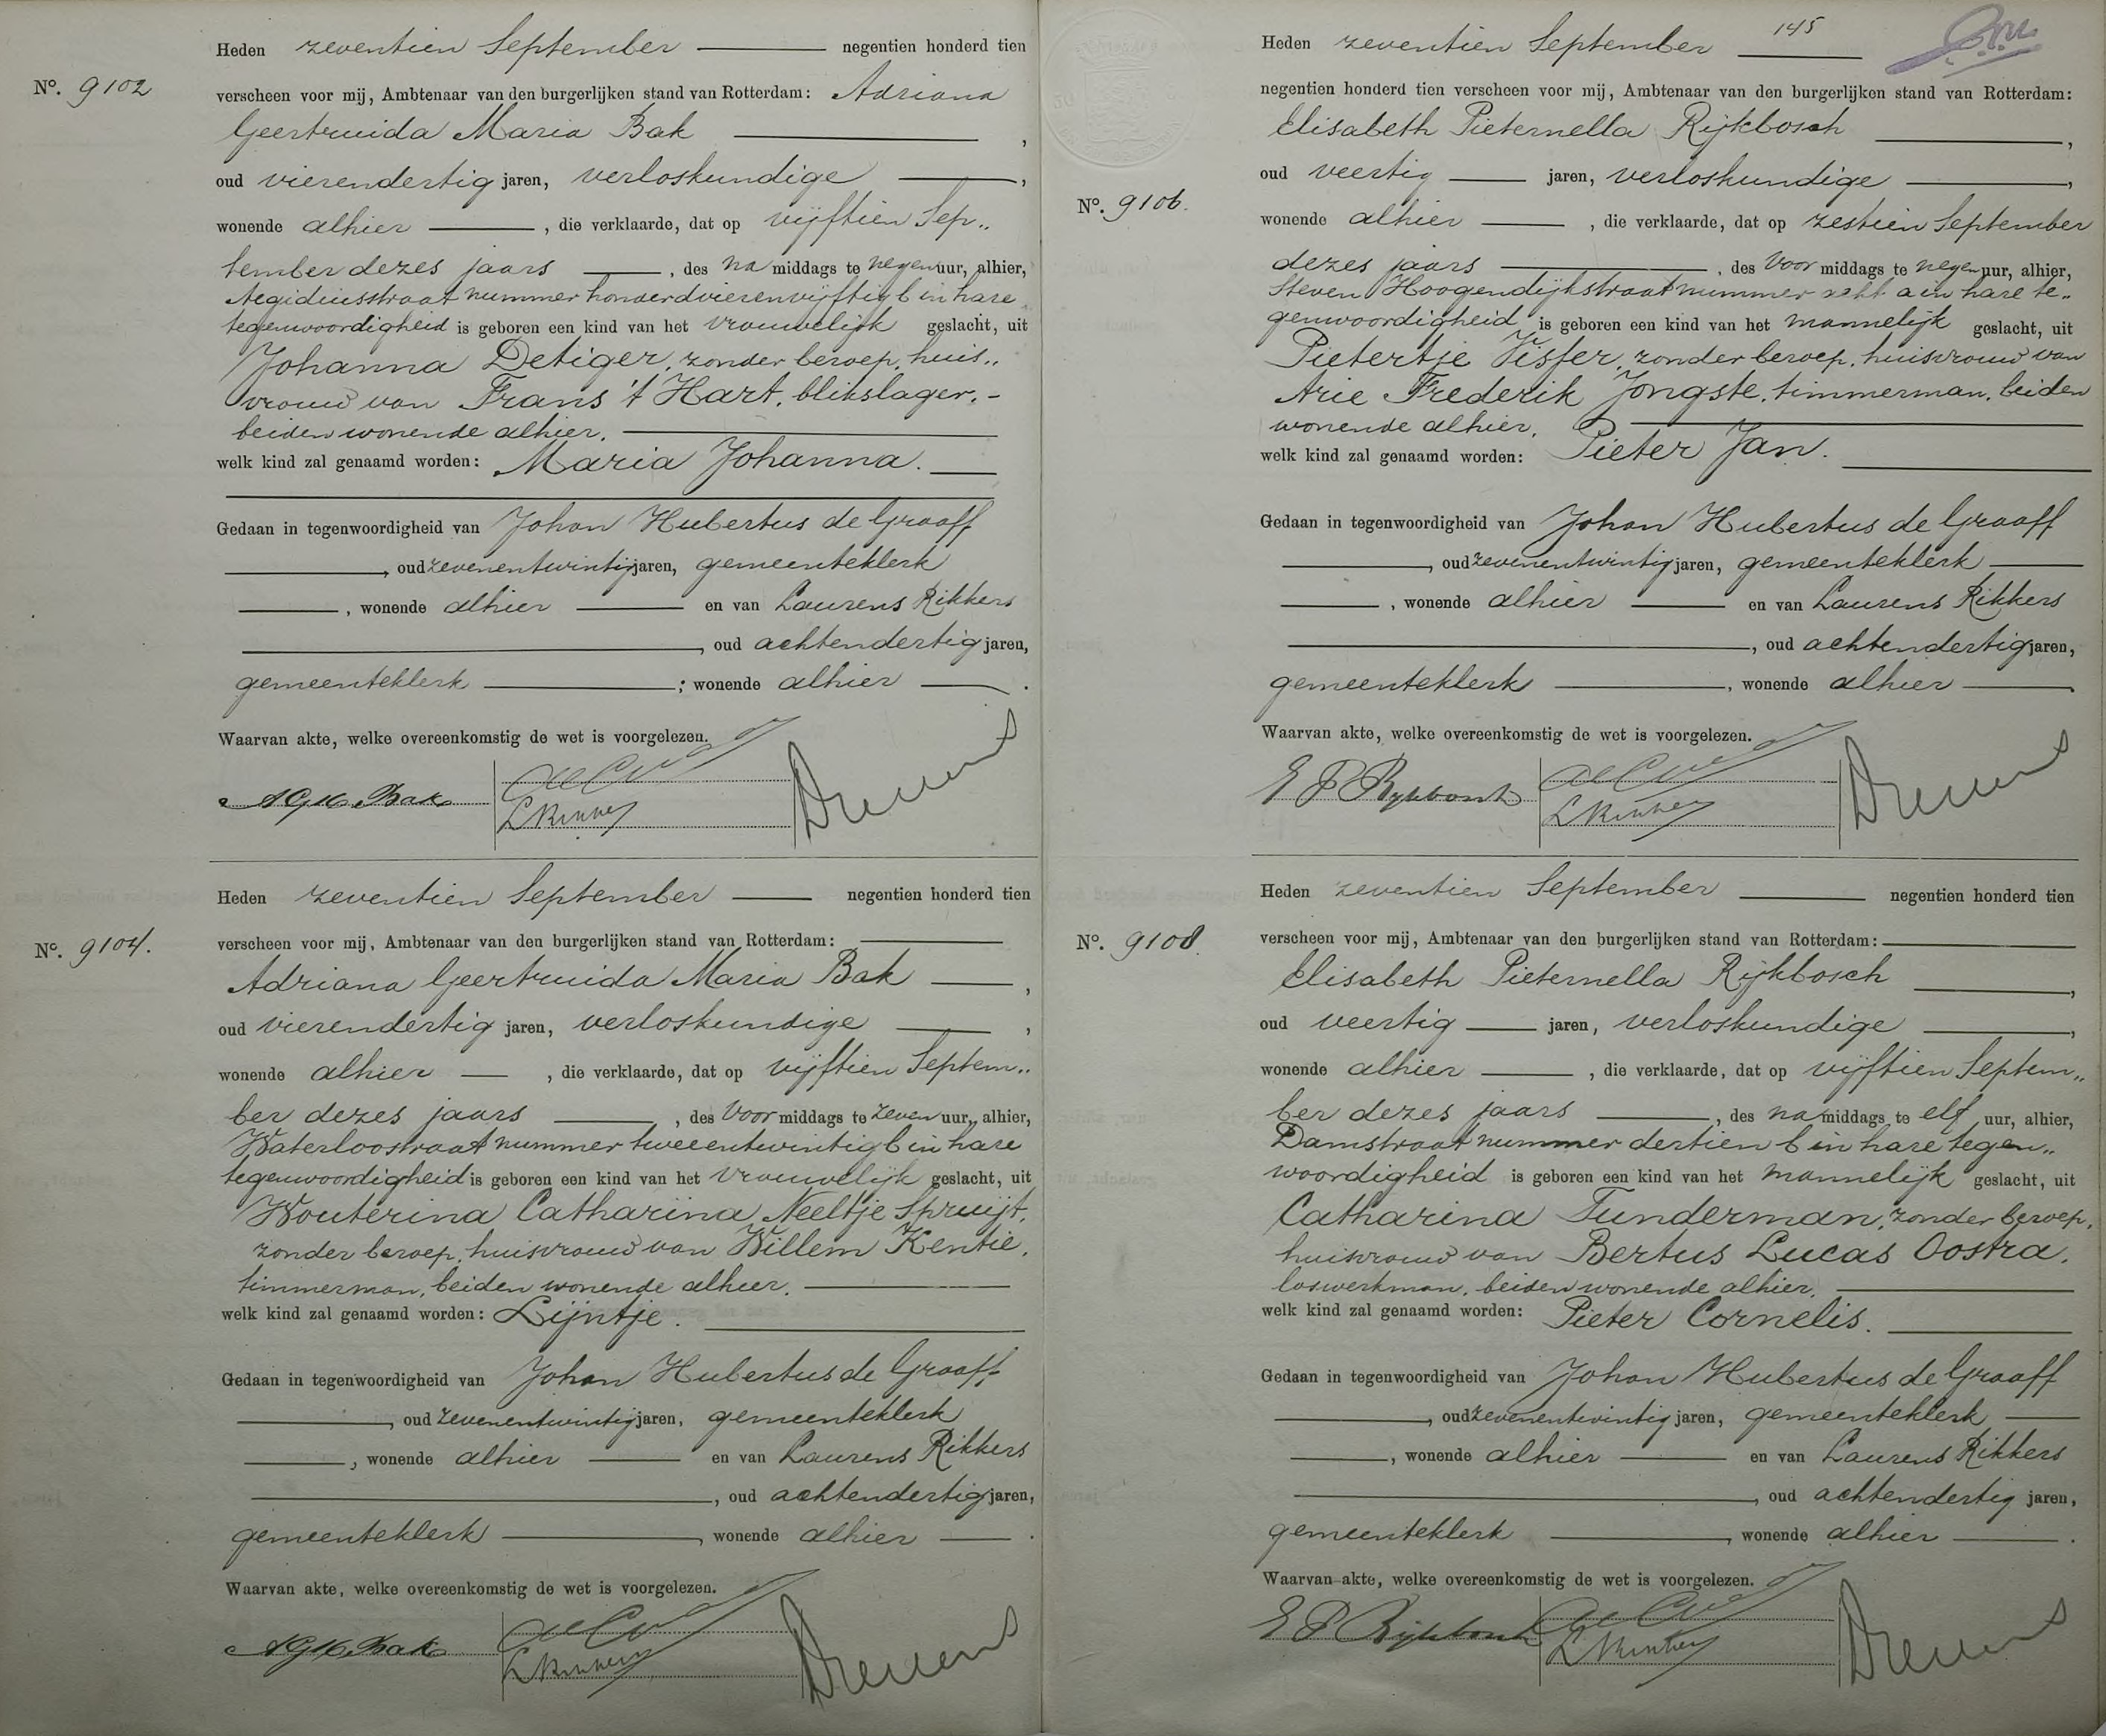 Heden zeventien September negentien honderd tien
No. 9102
verscheen voor mij, Ambtenaar van den burgerlijken stand van Rotterdam: Adriana
Geertruida Maria Bak ,
oud vierendertig jaren, verloskundige ,
wonende alhier , die verklaarde, dat op vijftien Sep„
tember dezes jaars , des namiddags te negen uur, alhier,
Aegidiusstraat nummer honderdvierenvijftig b in hare
tegenwoordigheid is geboren een kind van het vrouwelijk geslacht, uit
Johanna Detiger, zonder beroep, huis„
vrouw van Frans 't Hart, blikslager, -
beiden wonende alhier.
welk kind zal genaamd worden: Maria Johanna.
Gedaan in tegenwoordigheid van Johan Hubertus de Graaff
, oud zevenentwintig jaren, gemeenteklerk
, wonende alhier en van Laurens Rikkers
, oud achtendertig jaren,
gemeenteklerk ; wonende alhier .
Waarvan akte, welke overeenkomstig de wet is voorgelezen.
AGM Bak
Heden zeventien September negentien honderd tien
No. 9104.
verscheen voor mij, Ambtenaar van den burgerlijken stand van Rotterdam:
Adriana Geertruida Maria Bak ,
oud vierendertig jaren, verloskundige ,
wonende alhier , die verklaarde, dat op vijftien Septem„
ber dezes jaars , des voormiddags te zeven uur, alhier,
Waterloostraat nummer tweeentwintig b in hare
tegenwoordigheid is geboren een kind van het vrouwelijk geslacht, uit
Wouterina Catharina Neeltje Spruijt,
zonder beroep, huisvrouw van Willem Kentie,
timmerman, beiden wonende alhier.
welk kind zal genaamd worden: Lijntje.
Gedaan in tegenwoordigheid van Johan Hubertus de Graaff
, oud zevenentwintig jaren, gemeenteklerk
, wonende alhier en van Laurens Rikkers
, oud achtendertig jaren,
gemeenteklerk , wonende alhier .
Waarvan akte, welke overeenkomstig de wet is voorgelezen.
AGM Bak
145
Heden zeventien September
negentien honderd tien verscheen voor mij, Ambtenaar van den burgerlijken stand van Rotterdam:
Elisabeth Pieternella Rijkbosch ,
oud veertig jaren, verloskundige ,
No. 9106.
wonende alhier , die verklaarde, dat op zestien September
dezes jaars , des voormiddags te negen uur, alhier,
Steven Hoogendijkstraat nummer acht a in hare te„
genwoordigheid is geboren een kind van het mannelijk geslacht, uit
Pietertje Visser, zonder beroep, huisvrouw van
Arie Frederik Jongste, timmerman, beiden
wonende alhier.
welk kind zal genaamd worden: Pieter Jan.
Gedaan in tegenwoordigheid van Johan Hubertus de Graaff
, oud zevenentwintig jaren, gemeenteklerk
, wonende alhier en van Laurens Rikkers
, oud achtendertig jaren,
gemeenteklerk , wonende alhier .
Waarvan akte, welke overeenkomstig de wet is voorgelezen.
E P Rijkbosch
Heden zeventien September negentien honderd tien
No. 9108.
verscheen voor mij, Ambtenaar van den burgerlijken stand van Rotterdam:
Elisabeth Pieternella Rijkbosch ,
oud veertig jaren, verloskundige ,
wonende alhier , die verklaarde, dat op vijftien Septem„
ber dezes jaars , des namiddags te elf uur, alhier,
Damstraat nummer dertien b in hare tegen„
woordigheid is geboren een kind van het mannelijk geslacht, uit
Catharina Tunderman, zonder beroep,
huisvrouw van Bertus Lucas Oostra,
loswerkman, beiden wonende alhier.
welk kind zal genaamd worden: Pieter Cornelis.
Gedaan in tegenwoordigheid van Johan Hubertus de Graaff
, oud zevenentwintig jaren, gemeenteklerk
, wonende alhier en van Laurens Rikkers
, oud achtendertig jaren,
gemeenteklerk , wonende alhier .
Waarvan akte, welke overeenkomstig de wet is voorgelezen.
E P Rijkbosch